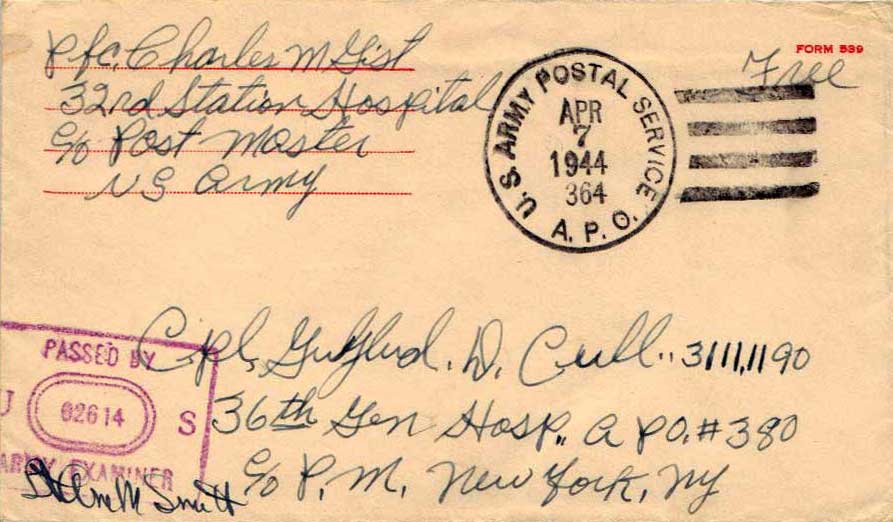 Pfc. Charles M Gist
32nd Station Hospital
c/o Post Master
US Army
FORM 539
Free
U. S. ARMY POSTAL SERVICE
APR
7
1944
364
A. P. O.
PASSED BY
U 02614 S
ARMY EXAMINER
Smith
Cpl. D. Cull. 31111190
36th Gen Hosp., A PO. # 380
c/o P. M. New York, NY